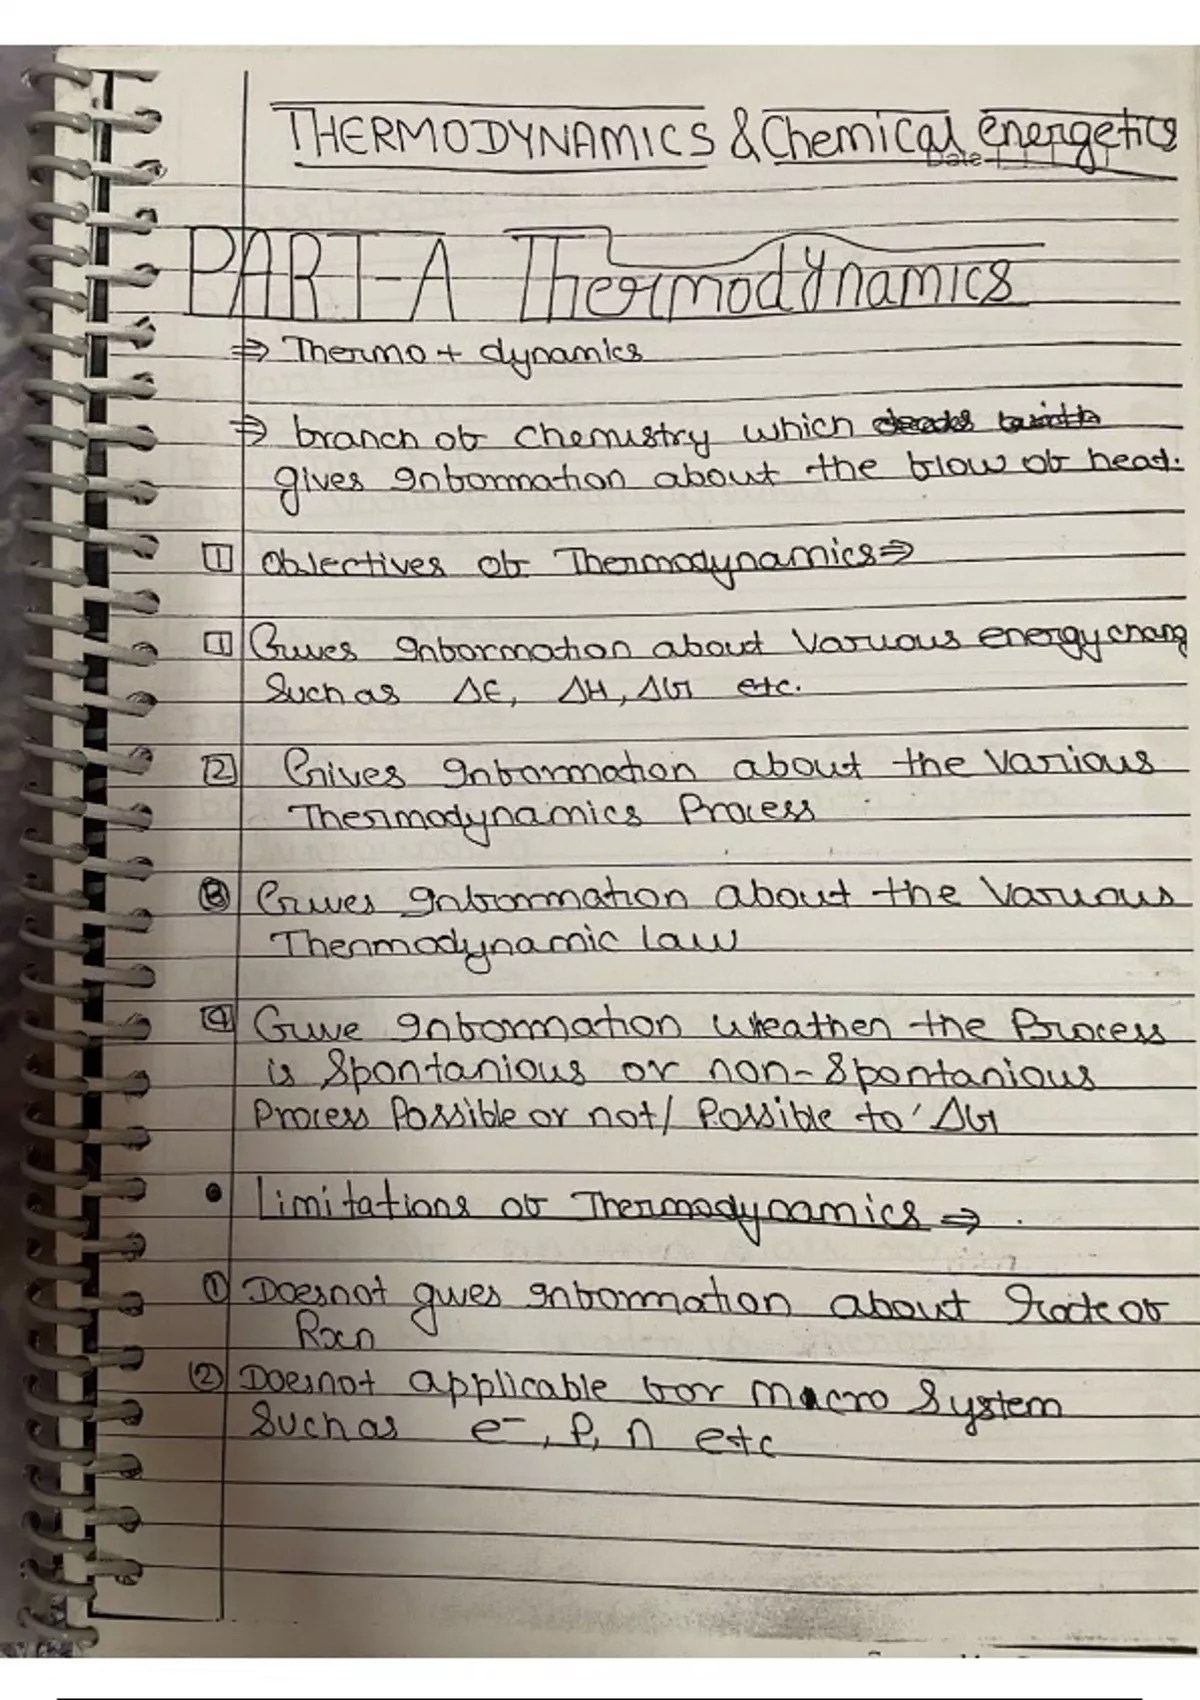 THERMODYNAMICS & Chemical energetics
Date
PART-A Thermodynamics
⇒ Thermo + dynamics
⇒ branch of chemistry which deals with
gives Information about the flow of heat.
1 Objectives of Thermodynamics⇒
1 Gives Information about Various energy chang
Such as ΔE, ΔH, ΔG etc.
2 Gives Information about the Various
Thermodynamics Process
3 Gives Information about the Various
Thermodynamic law
4 Give Information wheather the Process
is Spontanious or non-Spontanious
Process Possible or not/ Possible to' ΔG
• Limitations of Thermodynamics ⇒ .
1 Doesnot gives Information about Rate of
Rxn
2 Doesnot applicable for Macro System
Such as e⁻, P, n etc